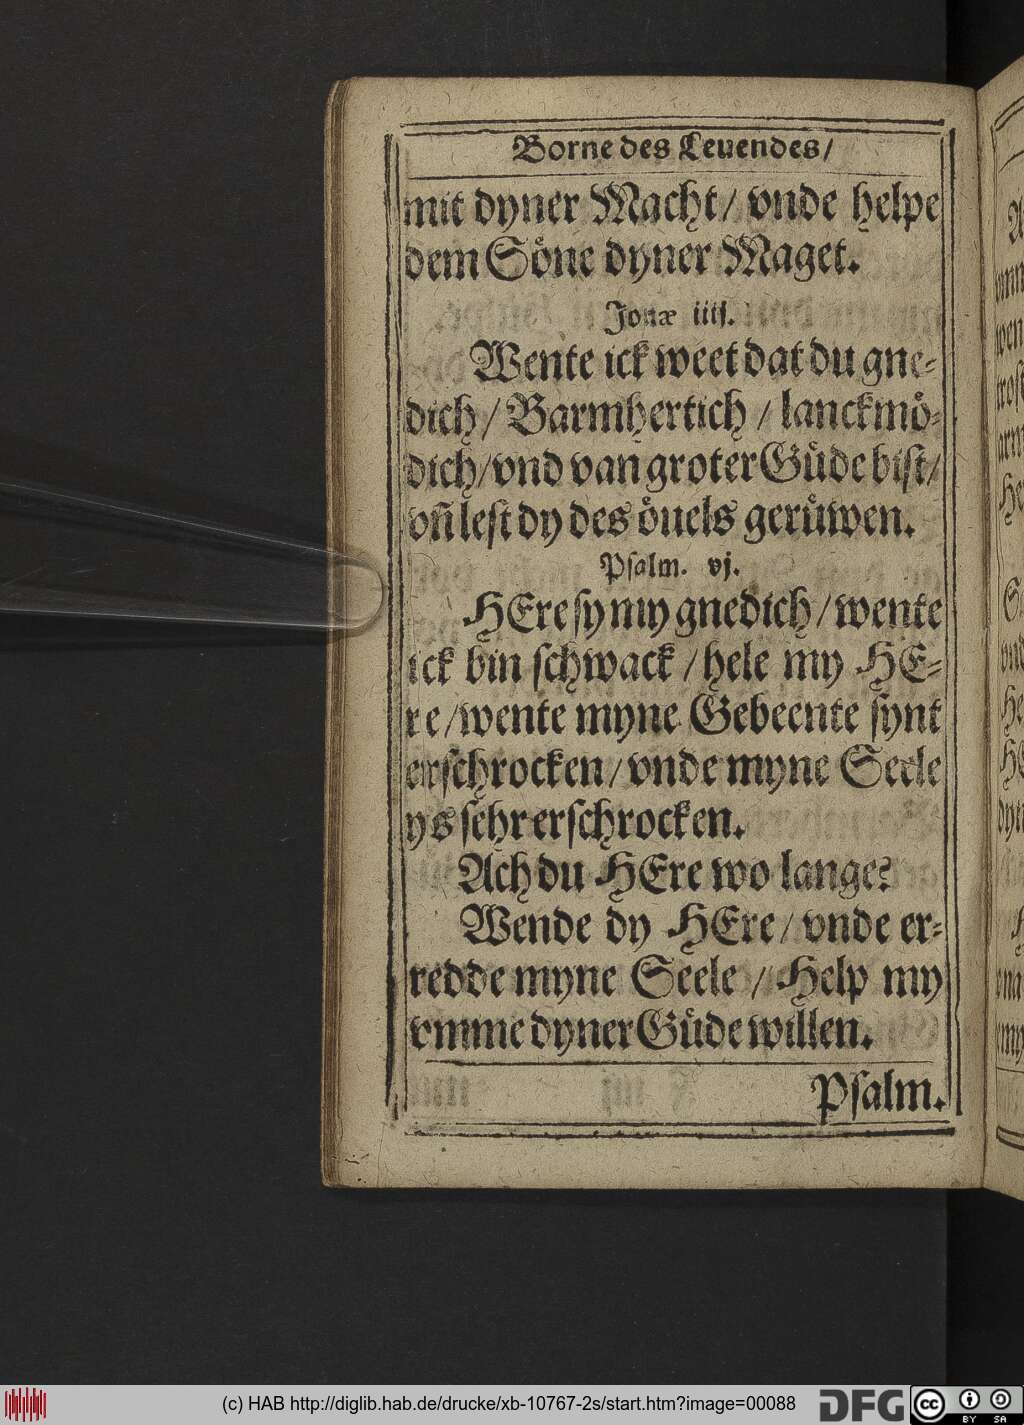 Borne des Leuendes/
mit dyner Macht/ vnde helpe
dem Soͤne dyner Maget.
Jonæ iiij.
Wente ick weet dat du gne⸗
dich/ Barmhertich / lanckmoͤ⸗
dich/vnd van groter Guͤde bist/
vn̄ lest dy des oͤuels geruͤwen.
Psalm. vj.
HEre sy my gnedich/wente
ick bin schwack /hele my HE⸗
re/wente myne Gebeente synt
erschrocken/vnde myne Seele
ys sehr erschrocken.
Ach du HEre wo lange?
Wende dy HEre/ vnde er⸗
redde myne Seele / Help my
vmme dyner Guͤde willen.
Psalm.
(c) HAB http://diglib.hab.de/drucke/xb-10767-2s/start.htm?image=00088
DFG
cc
BY SA